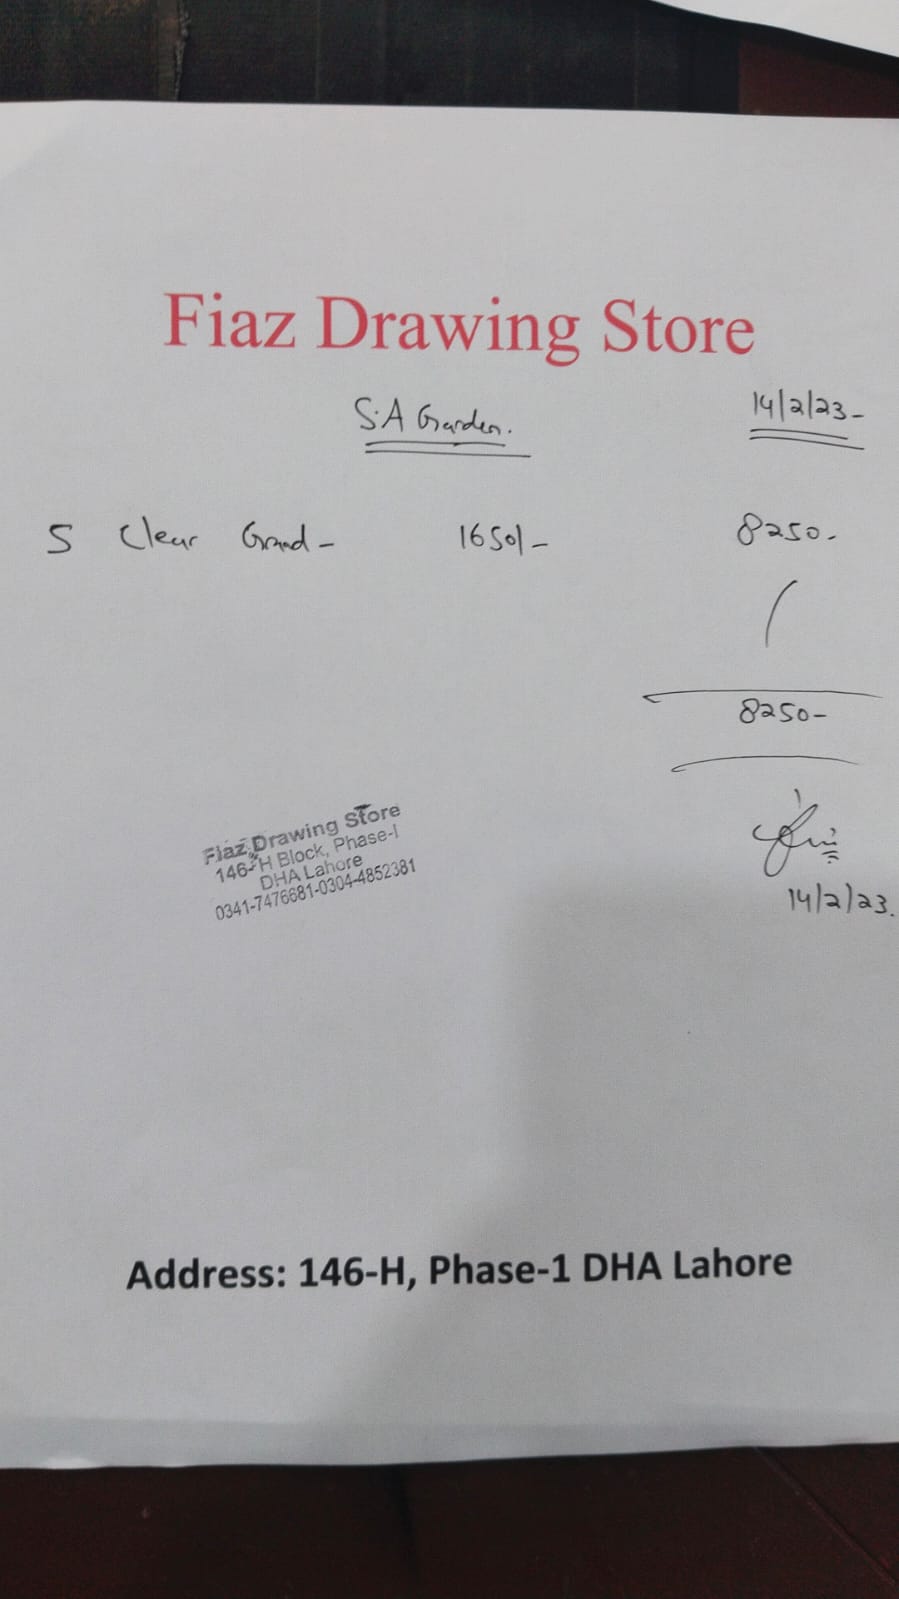 Fiaz Drawing Store
S.A Garden.
14/2/23-
5 Clear Grand - 1650/- 8250-
8250-
14/2/23.
Fiaz Drawing Store
146-H Block, Phase-I
DHA Lahore
0341-7476681-0304-4852381
Address: 146-H, Phase-1 DHA Lahore